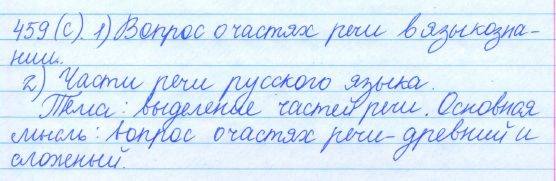 459(с). 1) Вопрос о частях речи в языкозна-
нии.
2) Части речи русского языка.
Тема: выделение частей речи. Основная
мысль: вопрос о частях речи - древний и
сложеный.